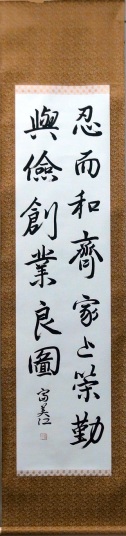 忍而和齊家上策勤
與儉創業良圖
富美江